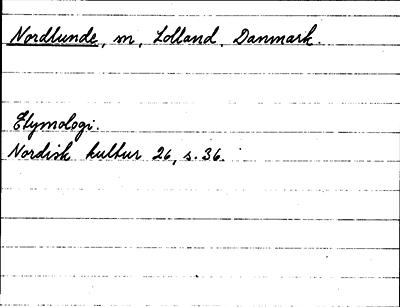 Nordlunde, m, Lolland, Danmark.
Etymologi.
Nordisk kultur 26, s. 36.